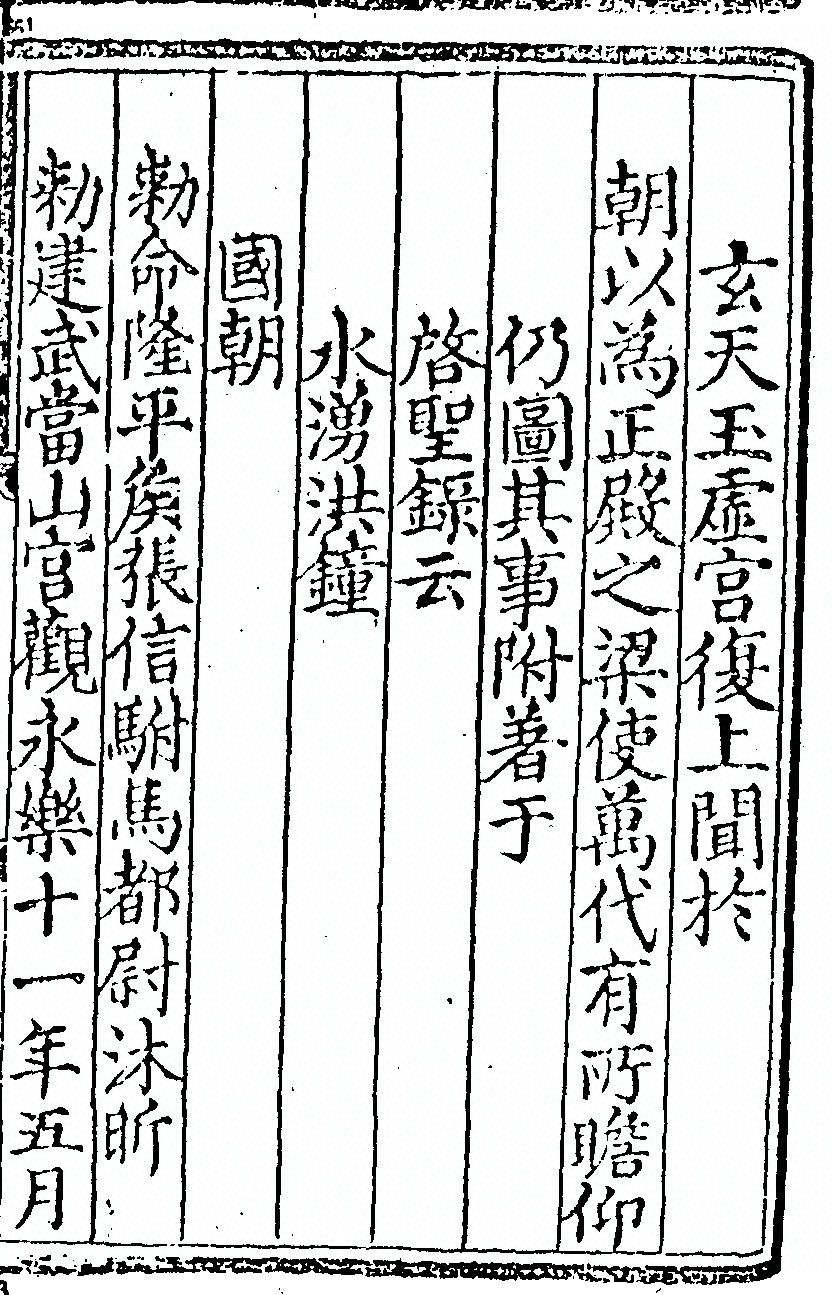 玄天玉虛宮復上聞於
朝以為正殿之梁使萬代有所瞻仰
仍圖其事附著于
啓聖錄云
水湧洪鐘
國朝
勑命隆平侯張信駙馬都尉沐昕
勑建武當山宮觀永樂十一年五月